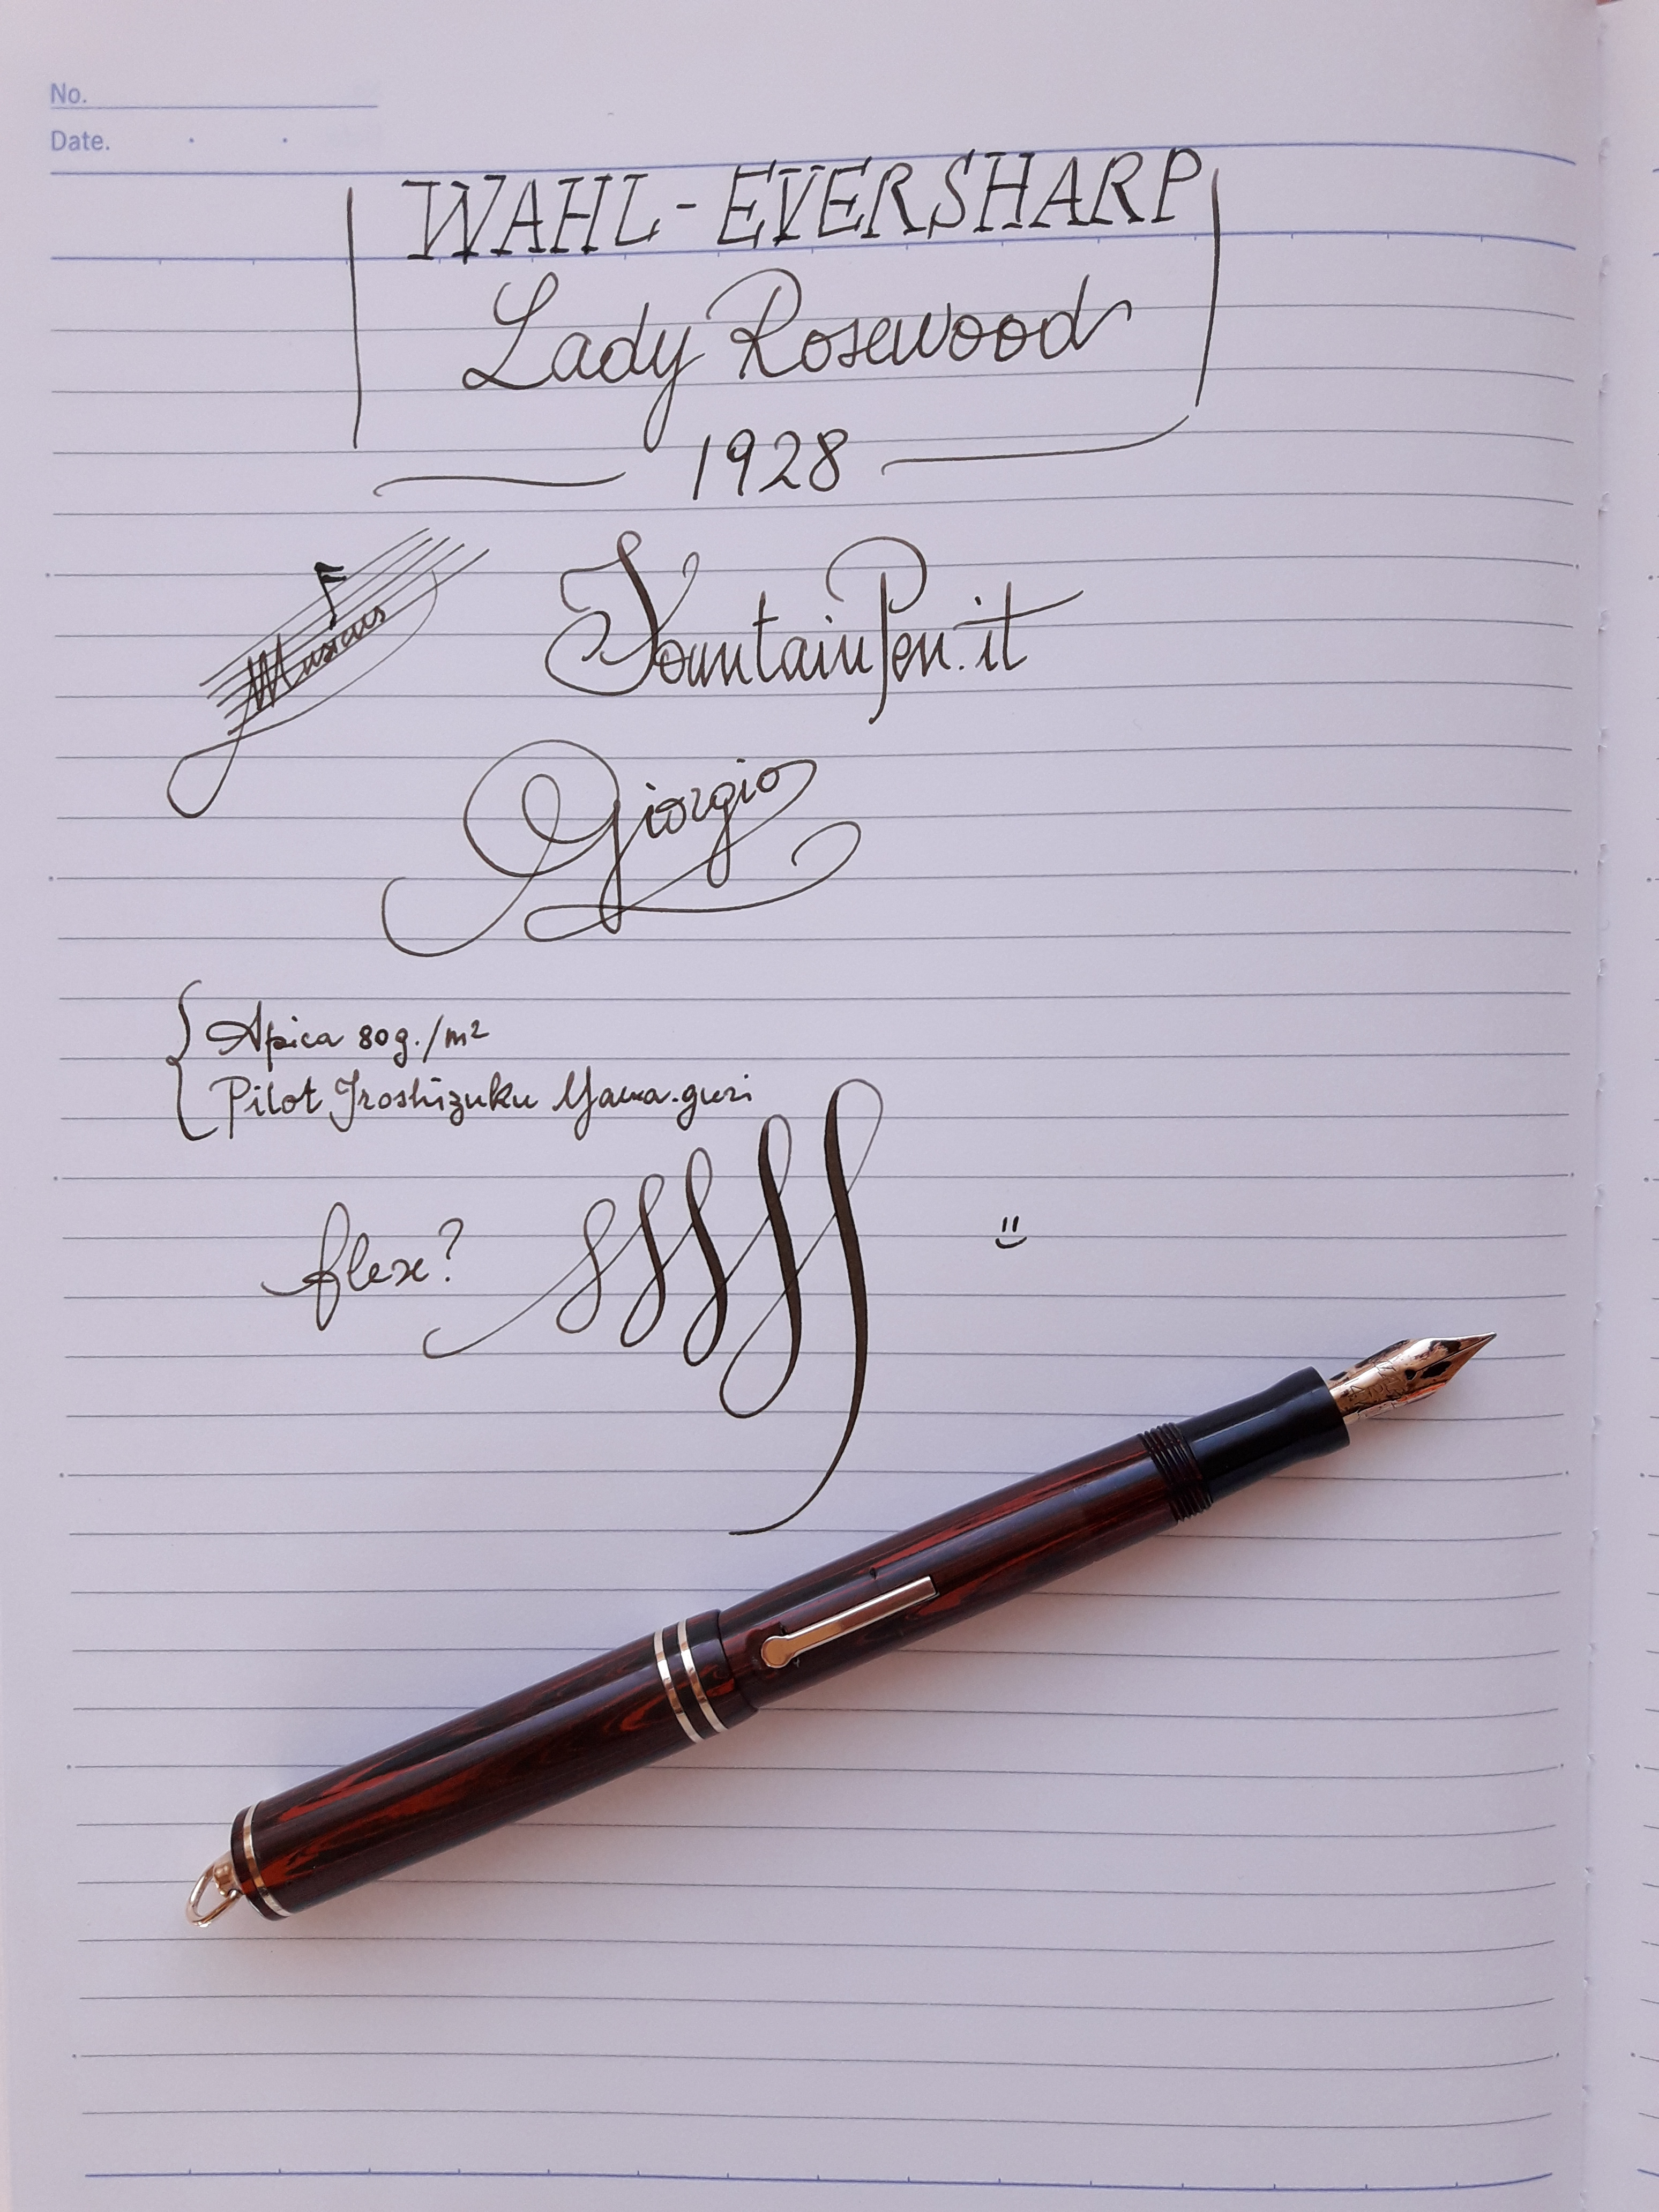 No.
Date.
WAHL-EVERSHARP
Lady Rosewood
1928
Musicus
FountainPen.it
Giorgio
Apica 80g./m²
Pilot Iroshizuku Yama-guri
flex?